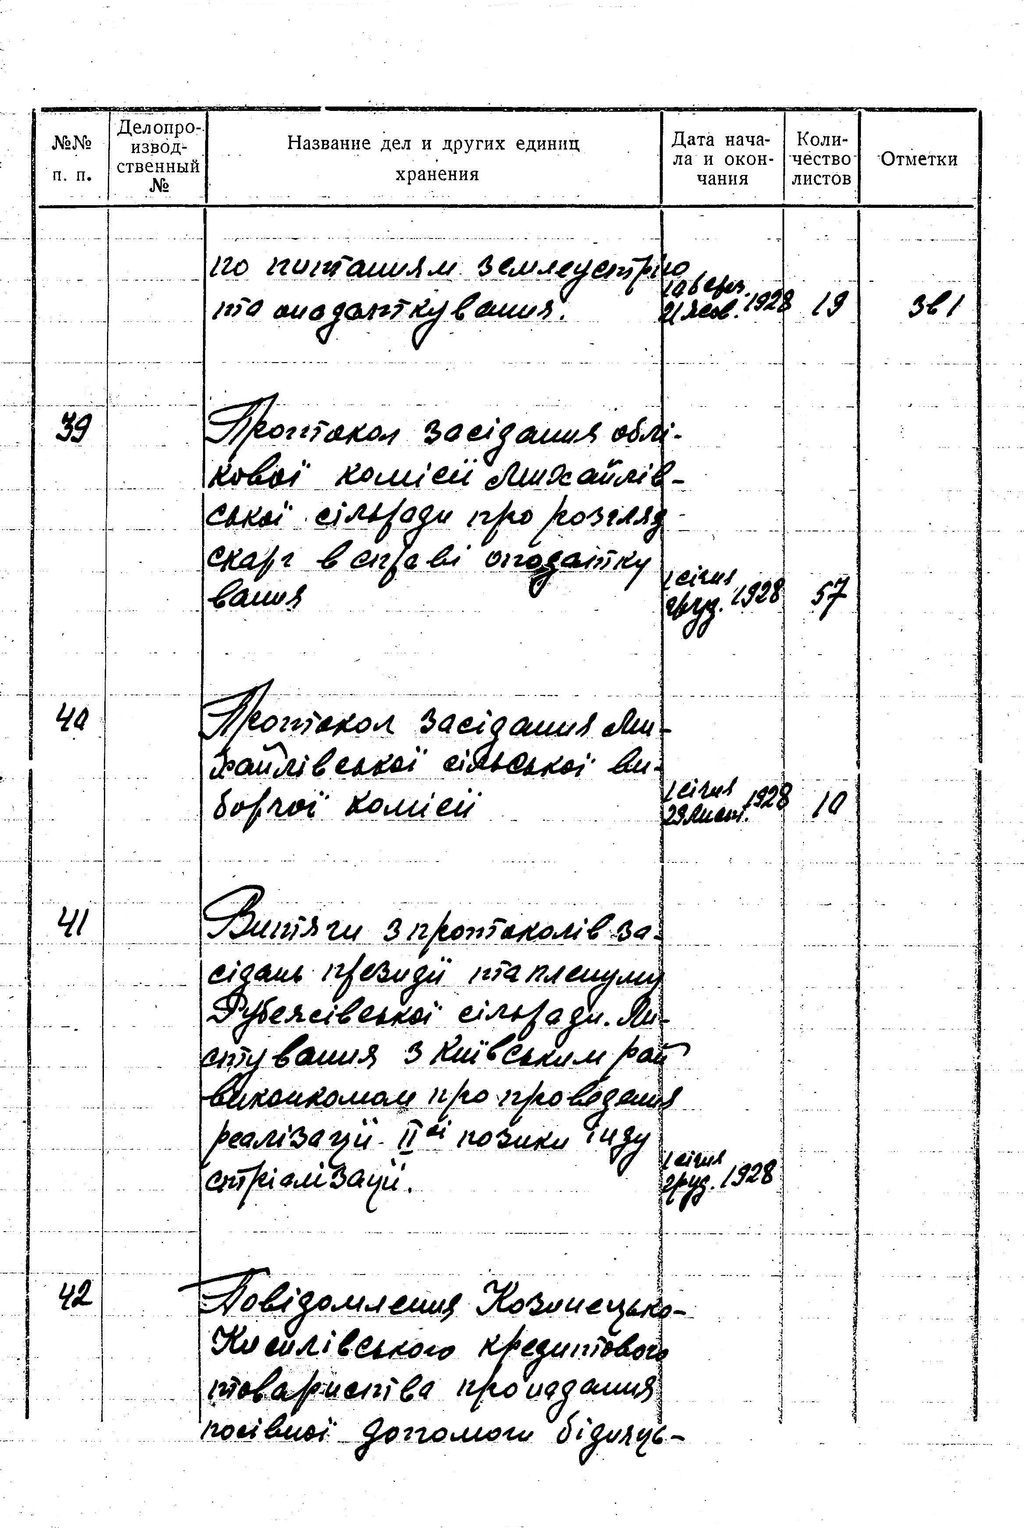 №№ п. п.
Делопро-
извод-
ственный
№
Название дел и других единиц
хранения
Дата нача-
ла и окон-
чания
Коли-
чество
листов
Отметки
по питанням землеустрію
та оподаткування.
10 берез.
21 жов. 1928
19
зв 1
39
Протокол засідання облі-
кової комісії Михайлів-
ської сільради про розгляд
скарг в справі оподатку
вання
1 січня
груд. 1928
57
40
Протокол засідання Ми-
хайлівської сільської ви-
борчої комісії
1 січня
29 лист. 1928
10
41
Витяги з протоколів за-
сідань президії та пленуму
сільради. Ли-
стування з Київським рай
виконкомом про проведення
реалізації ІІої позики інду
стріалізації.
1 січня
груд. 1928
42
Повідомлення
кредитового
товариства про надання
посівної допомоги бідняць-